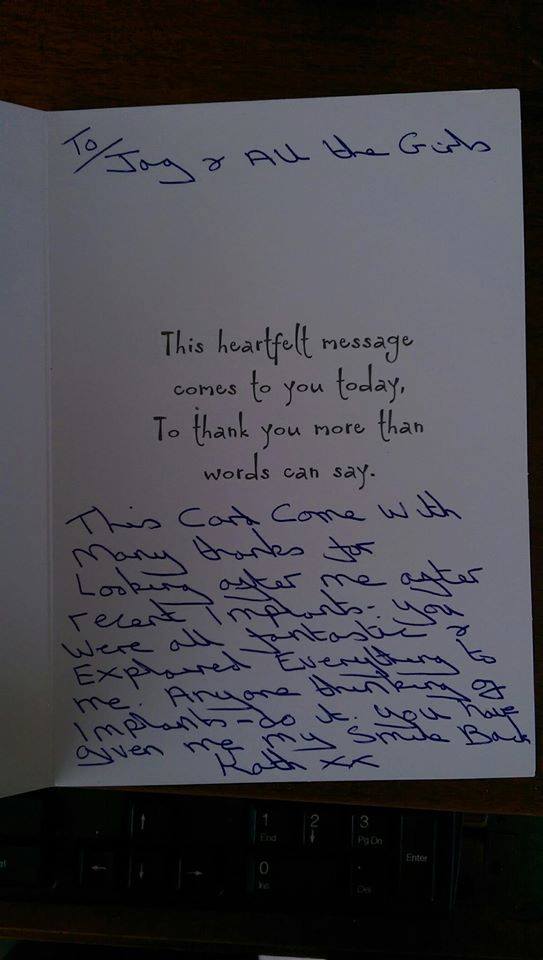 To/ Jag & All the Girls
This heartfelt message
comes to you today,
To thank you more than
words can say.
This Card Come with
Many thanks for
Looking after me after
recent Implants. You
Were all fantastic &
Explained Everything to
me. Anyone thinking of
Implants - do it. You have
given me my Smile Back
Kath xx
↑
1 End
2 ↓
3 Pg Dn
Enter
← ↓ →
0 Ins
. Del